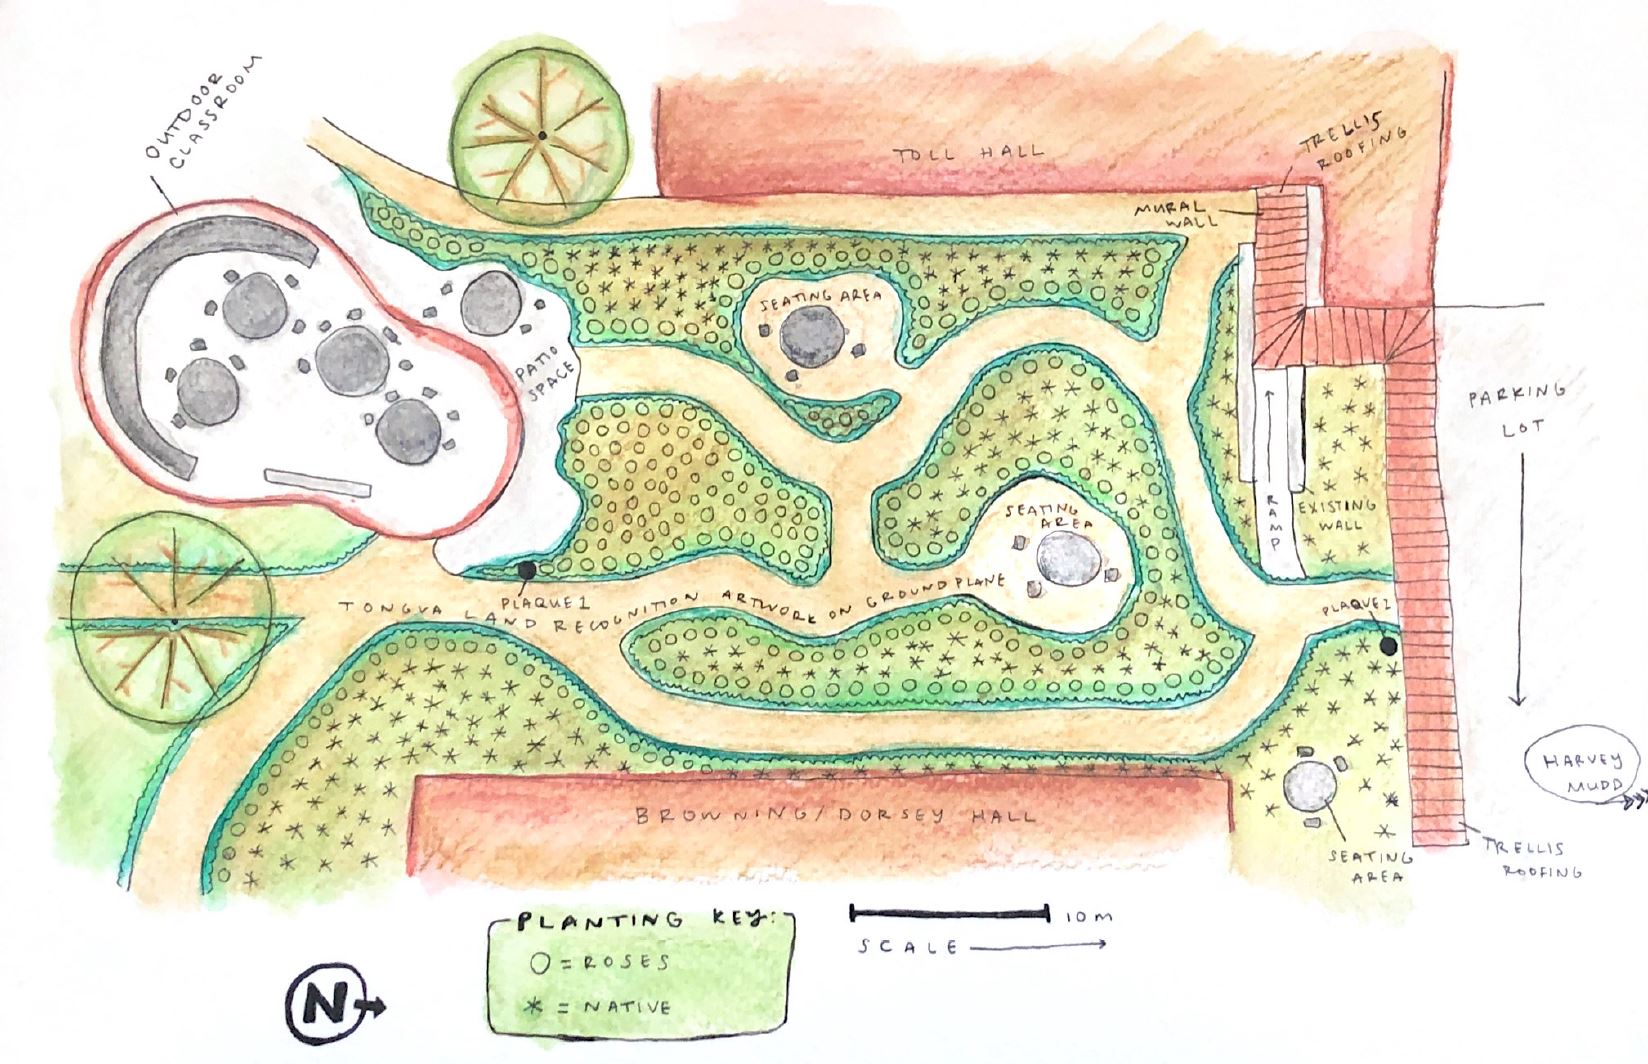 OUTDOOR
CLASSROOM
TOLL HALL
TRELLIS
ROOFING
MURAL
WALL
SEATING AREA
PATIO
SPACE
PARKING
LOT
SEATING
AREA
RAMP
EXISTING
WALL
PLAQUE 1
TONGVA LAND RECOGNITION ARTWORK ON GROUND PLANE
PLAQUE 2
HARVEY
MUDD
BROWNING/DORSEY HALL
SEATING
AREA
TRELLIS
ROOFING
PLANTING KEY:
O = ROSES
* = NATIVE
10 m
SCALE
N